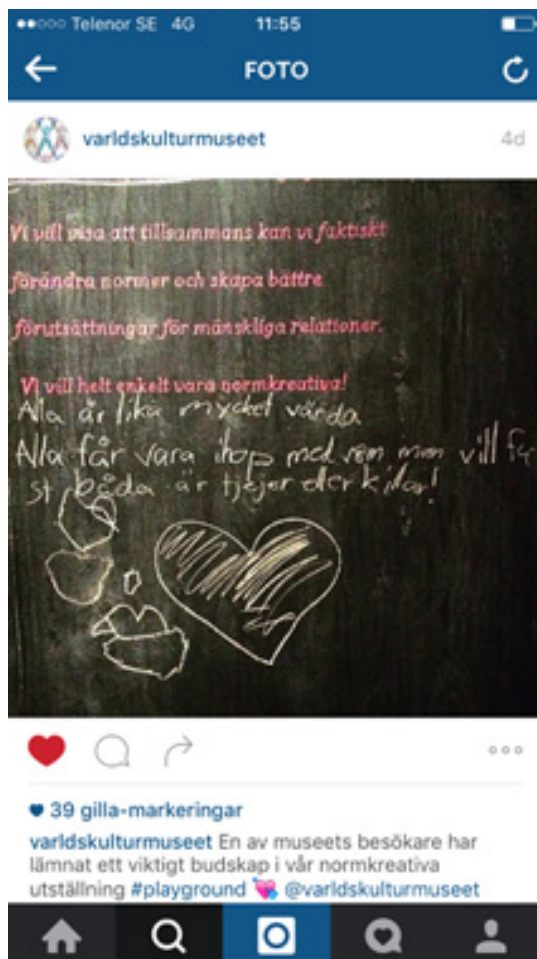 Telenor SE 4G 11:55
FOTO
varldskulturmuseet 4d
Vi vill visa att tillsammans kan vi faktiskt
förändra normer och skapa bättre
förutsättningar för mänskliga relationer.
Vi vill helt enkelt vara normkreativa!
Alla är lika mycket värda
Alla får vara ihop med vem man vill fa
st båda är tjejer eler killar!
39 gilla-markeringar
varldskulturmuseet En av museets besökare har
lämnat ett viktigt budskap i vår normkreativa
utställning #playground 💘 @varldskulturmuseet